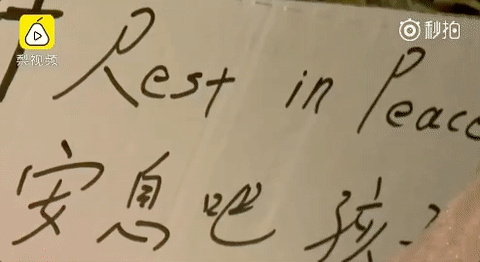 梨视频
秒拍
Rest in Peace
安息吧 孩子